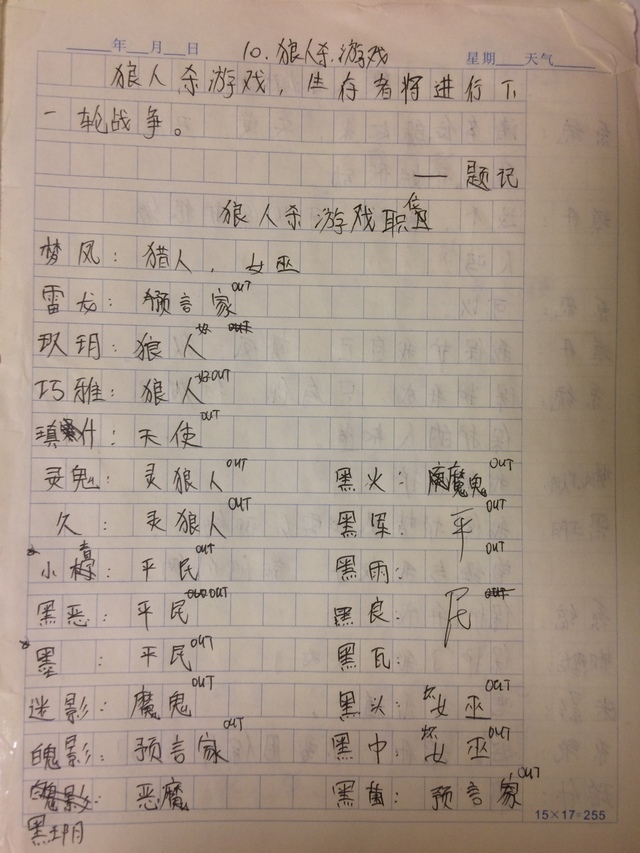 年 月 日 10.狼人杀游戏 星期 天气
狼人杀游戏，生存者将进行下
一轮战争。
——题记
狼人杀游戏职位
梦风：猎人，女巫
雷龙：预言家OUT
玖玥：狼人
巧雅：狼人好OUT
什：天使OUT
灵鬼：灵狼人OUT 黑火：魔鬼OUT
久：灵狼人OUT 黑军：平OUT
小：平民OUT 黑雨：OUT
黑恶：平民OUT 黑良：民
墨：平民OUT 黑瓦：
迷影：魔鬼OUT 黑头：坏女巫OUT
魄影：预言家OUT 黑中：坏女巫OUT
恶魔 黑菌：预言家OUT
黑玥
15×17=255